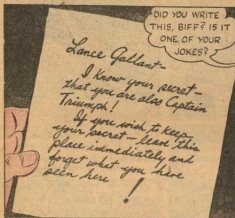 DID YOU WRITE
THIS, BIFF? IS IT
ONE OF YOUR
JOKES?
Lance Gallant-
I know your secret-
that you are also Captain
Triumph!
If you wish to keep
your secret- leave this
place immediately and
forget what you have
seen here!